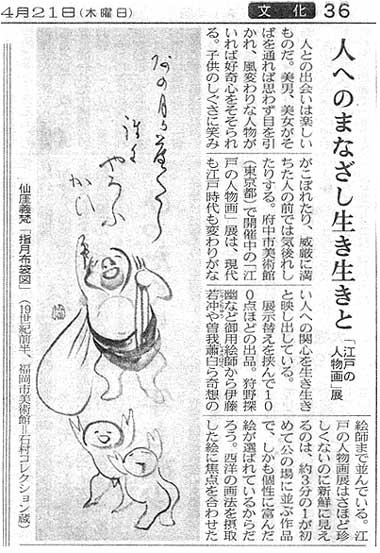 4月21日(木曜日)
文化
36
人へのまなざし生き生きと
「江戸の
人物画」展
人との出会いは楽しい
ものだ。美男、美女がそ
ばを通れば思わず目を引
かれ、風変わりな人物が
いれば好奇心をそそられ
る。子供のしぐさに笑み
がこぼれたり、威厳に満
ちた人の前では気後れし
たりする。府中市美術館
（東京都）で開催中の「江
戸の人物画」展は、現代
も江戸時代も変わりがな
い人への関心を生き生き
と映し出している。
展示替えを挟んで10
0点ほどの出品。狩野探
幽など御用絵師から伊藤
若冲や曽我蕭白ら奇想の
絵師まで並んでいる。江
戸の人物画展はさほど珍
しくないのに新鮮に見え
るのは、約3分の1が初
めて公の場に並ぶ作品
で、しかも個性に富んだ
絵が選ばれているからだ
ろう。西洋の画法を摂取
した絵に焦点を合わせた
あの月か落たら
誰に
やろふ
かい
仙厓義梵「指月布袋図」（19世紀前半、福岡市美術館＝石村コレクション蔵）